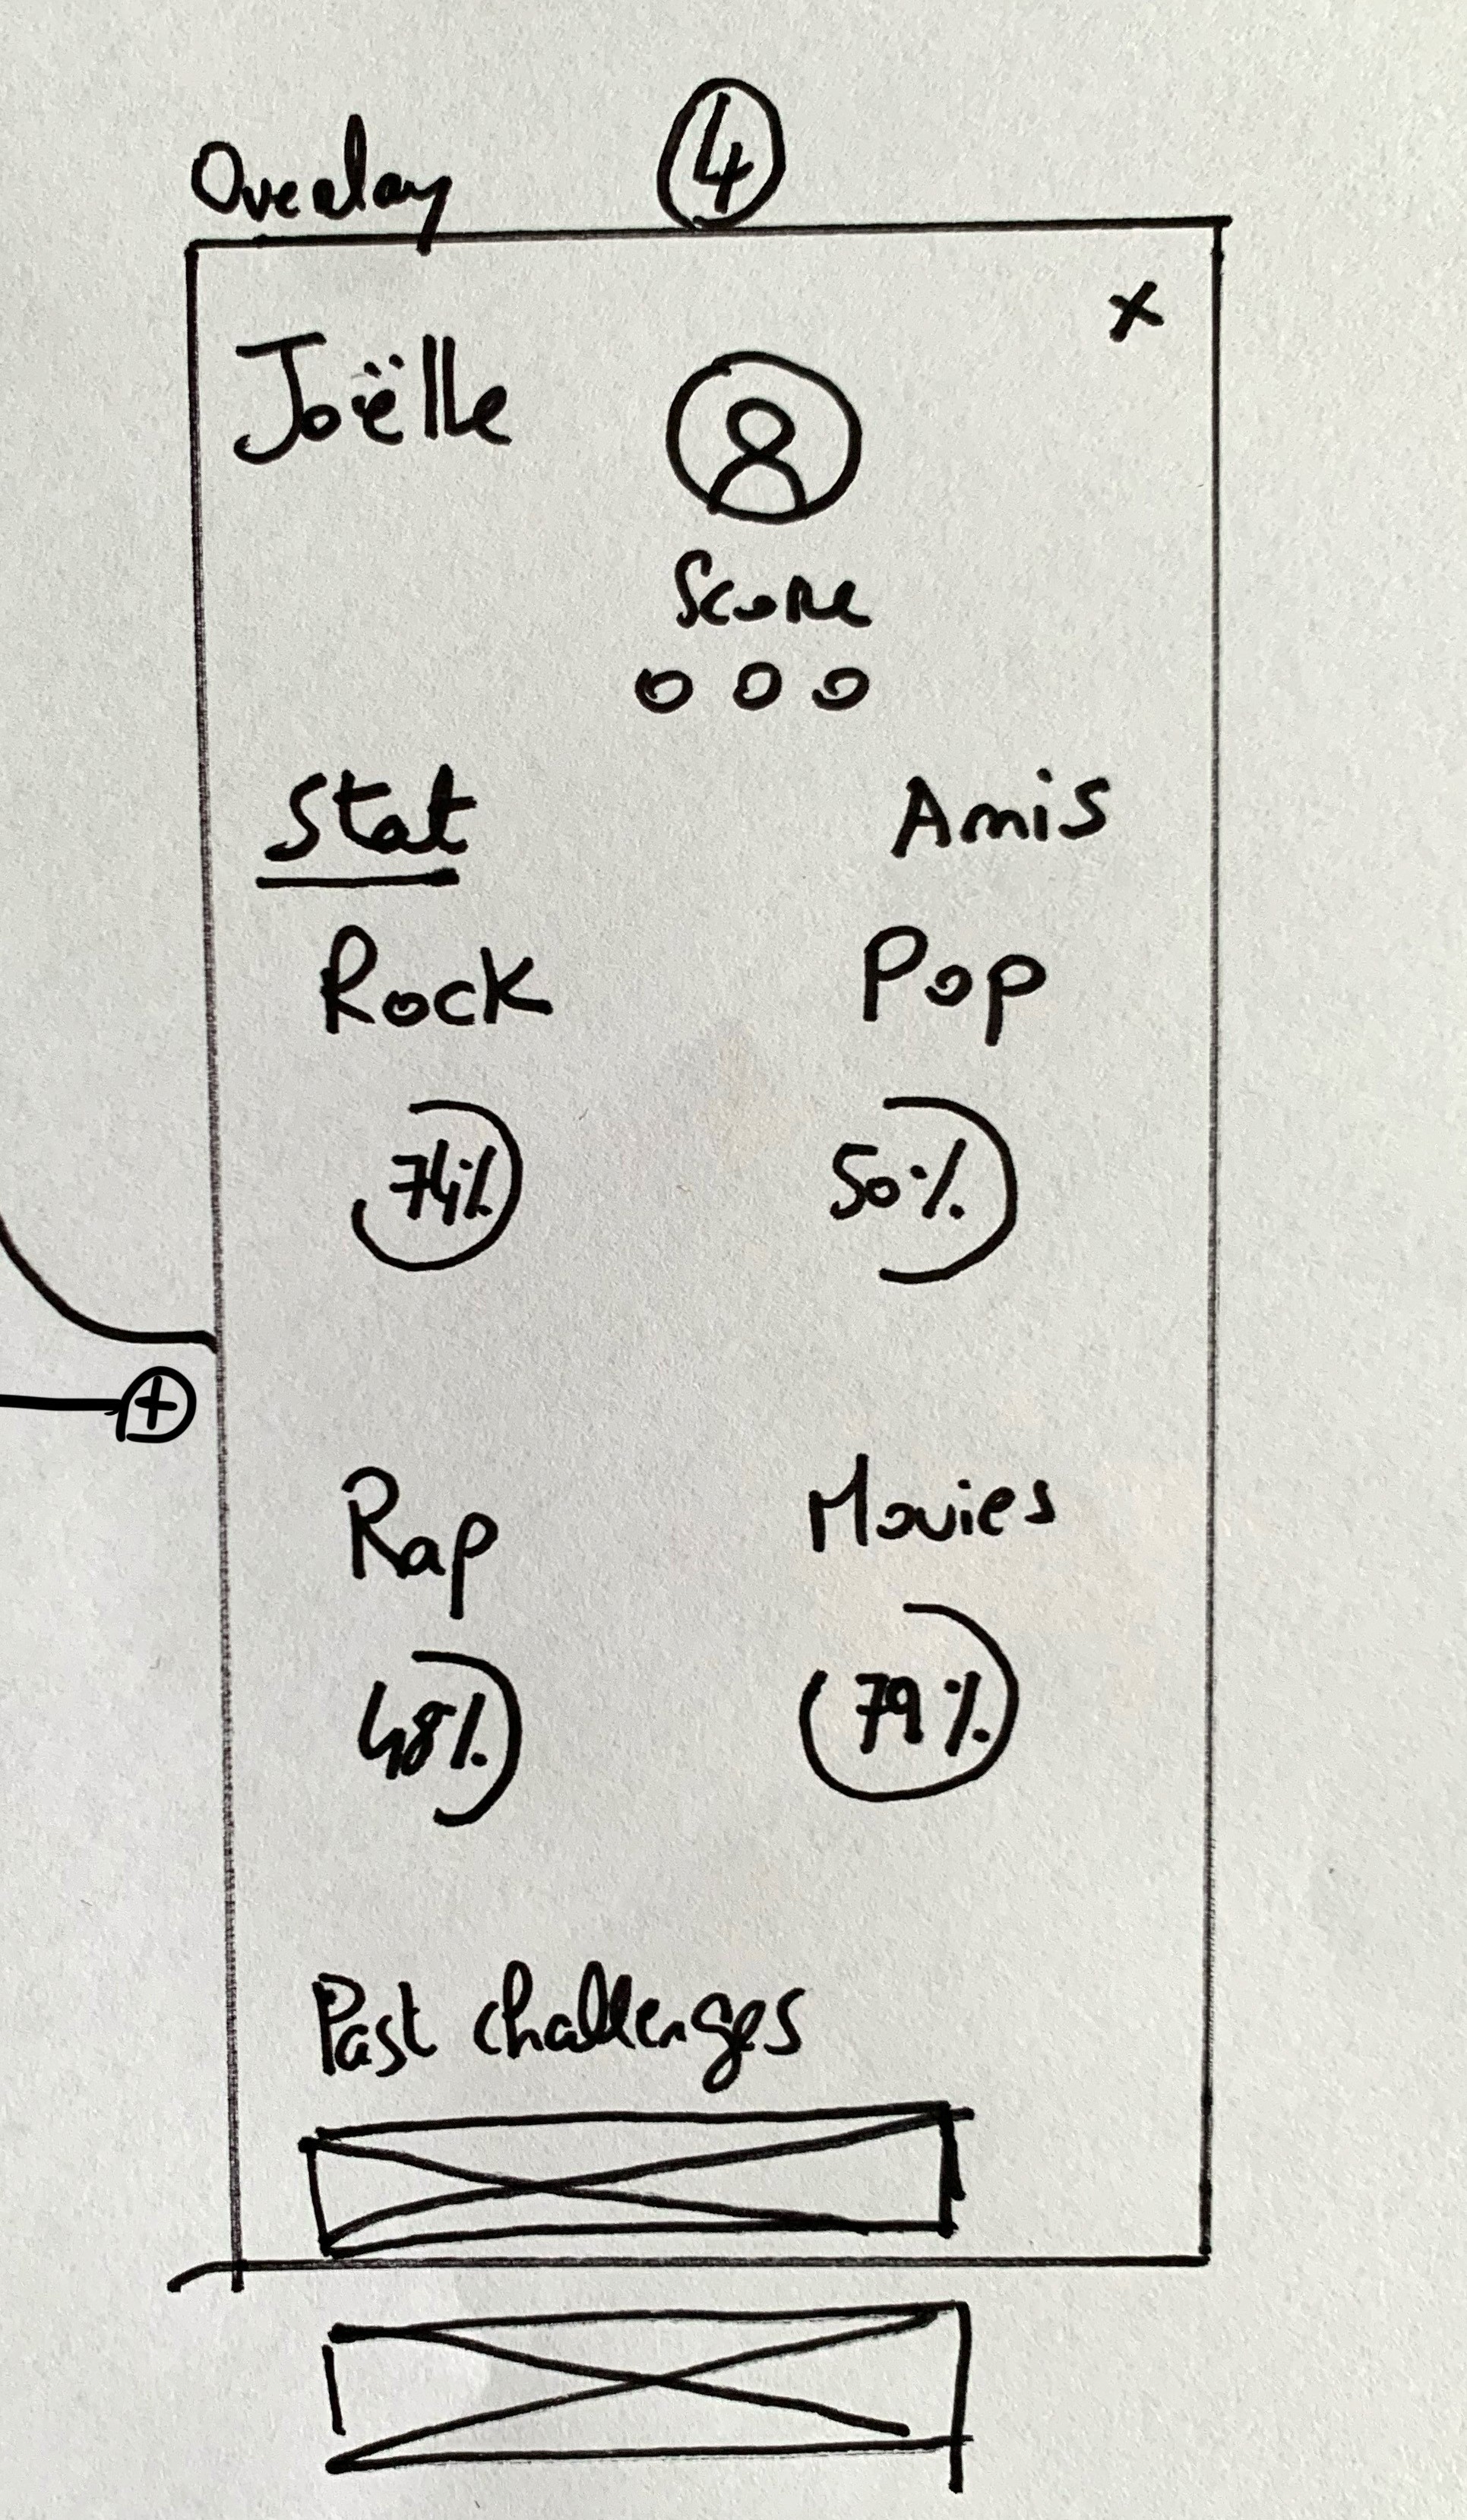 Overlay 4
x
Joëlle
Score
Stat Amis
Rock Pop
74% 50%
+
Rap Movies
48% 79%
Past challenges